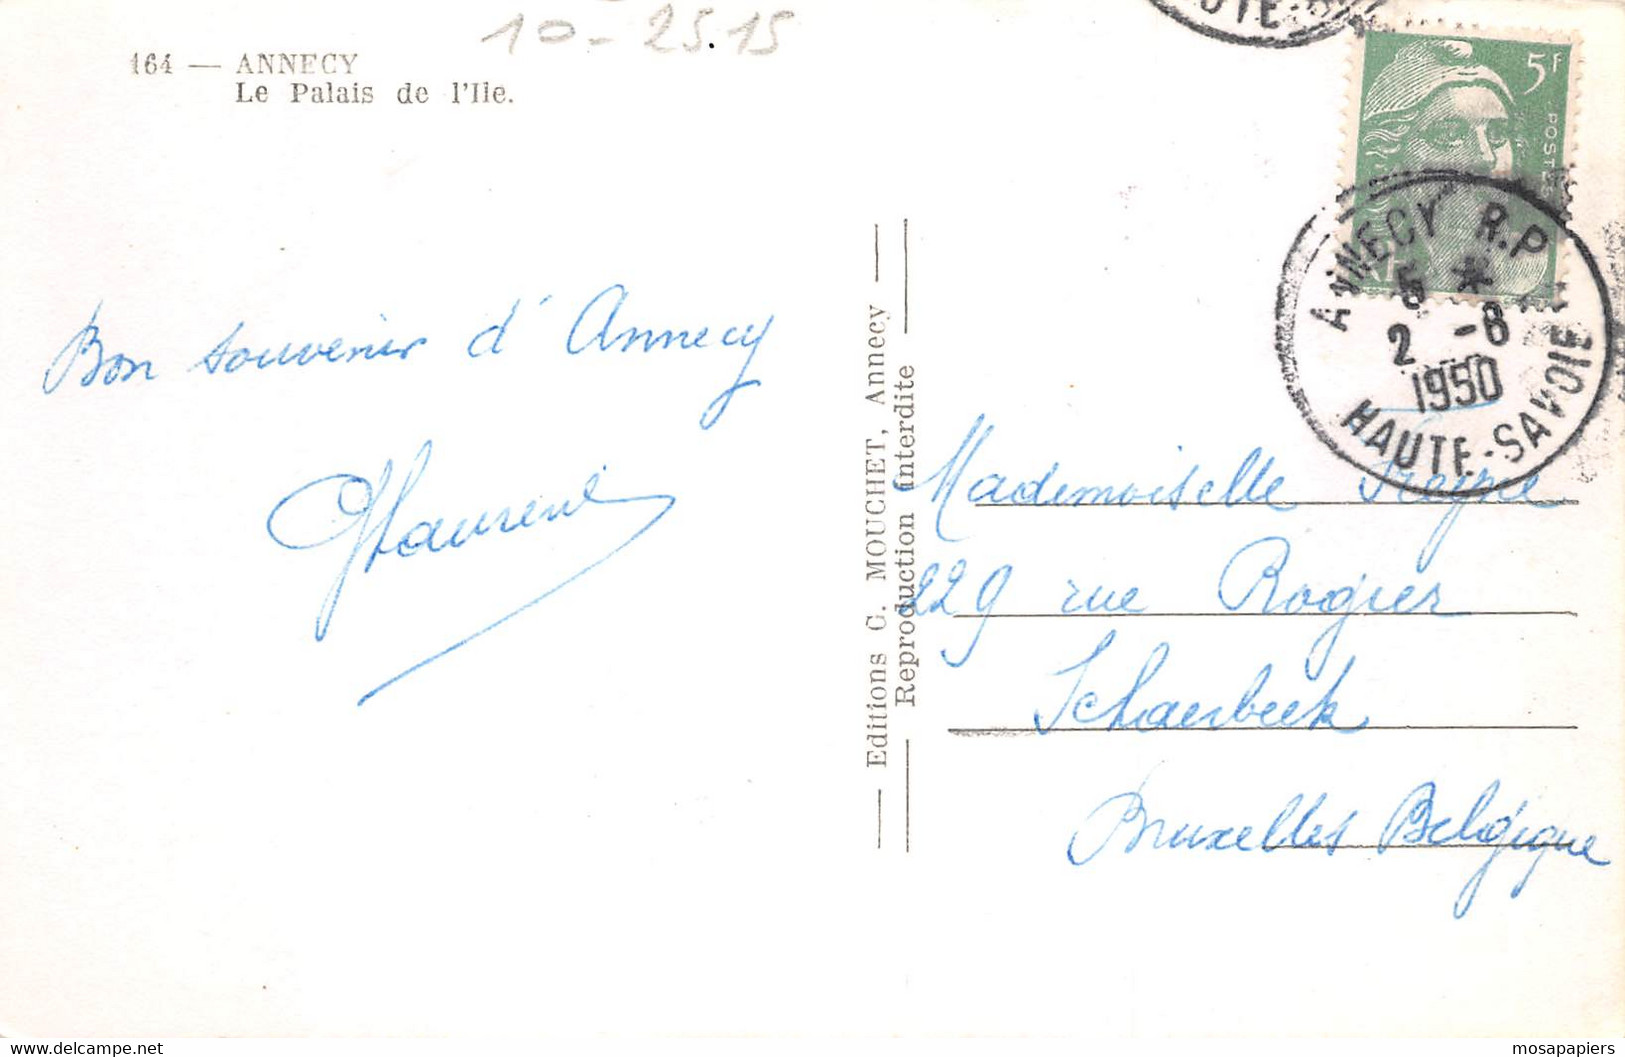 10-25.15
164 — ANNECY
Le Palais de l'Ile.
Bon souvenir d'Annecy
Editions C. MOUCHET, Annecy
Reproduction interdite
5F
POSTES
ANNECY R.P
5 *
2 -8
1950
HAUTE-SAVOIE
Mademoiselle
229 rue Rogier
Schaerbeek
Bruxelles Belgique
www.delcampe.net
mosapapiers